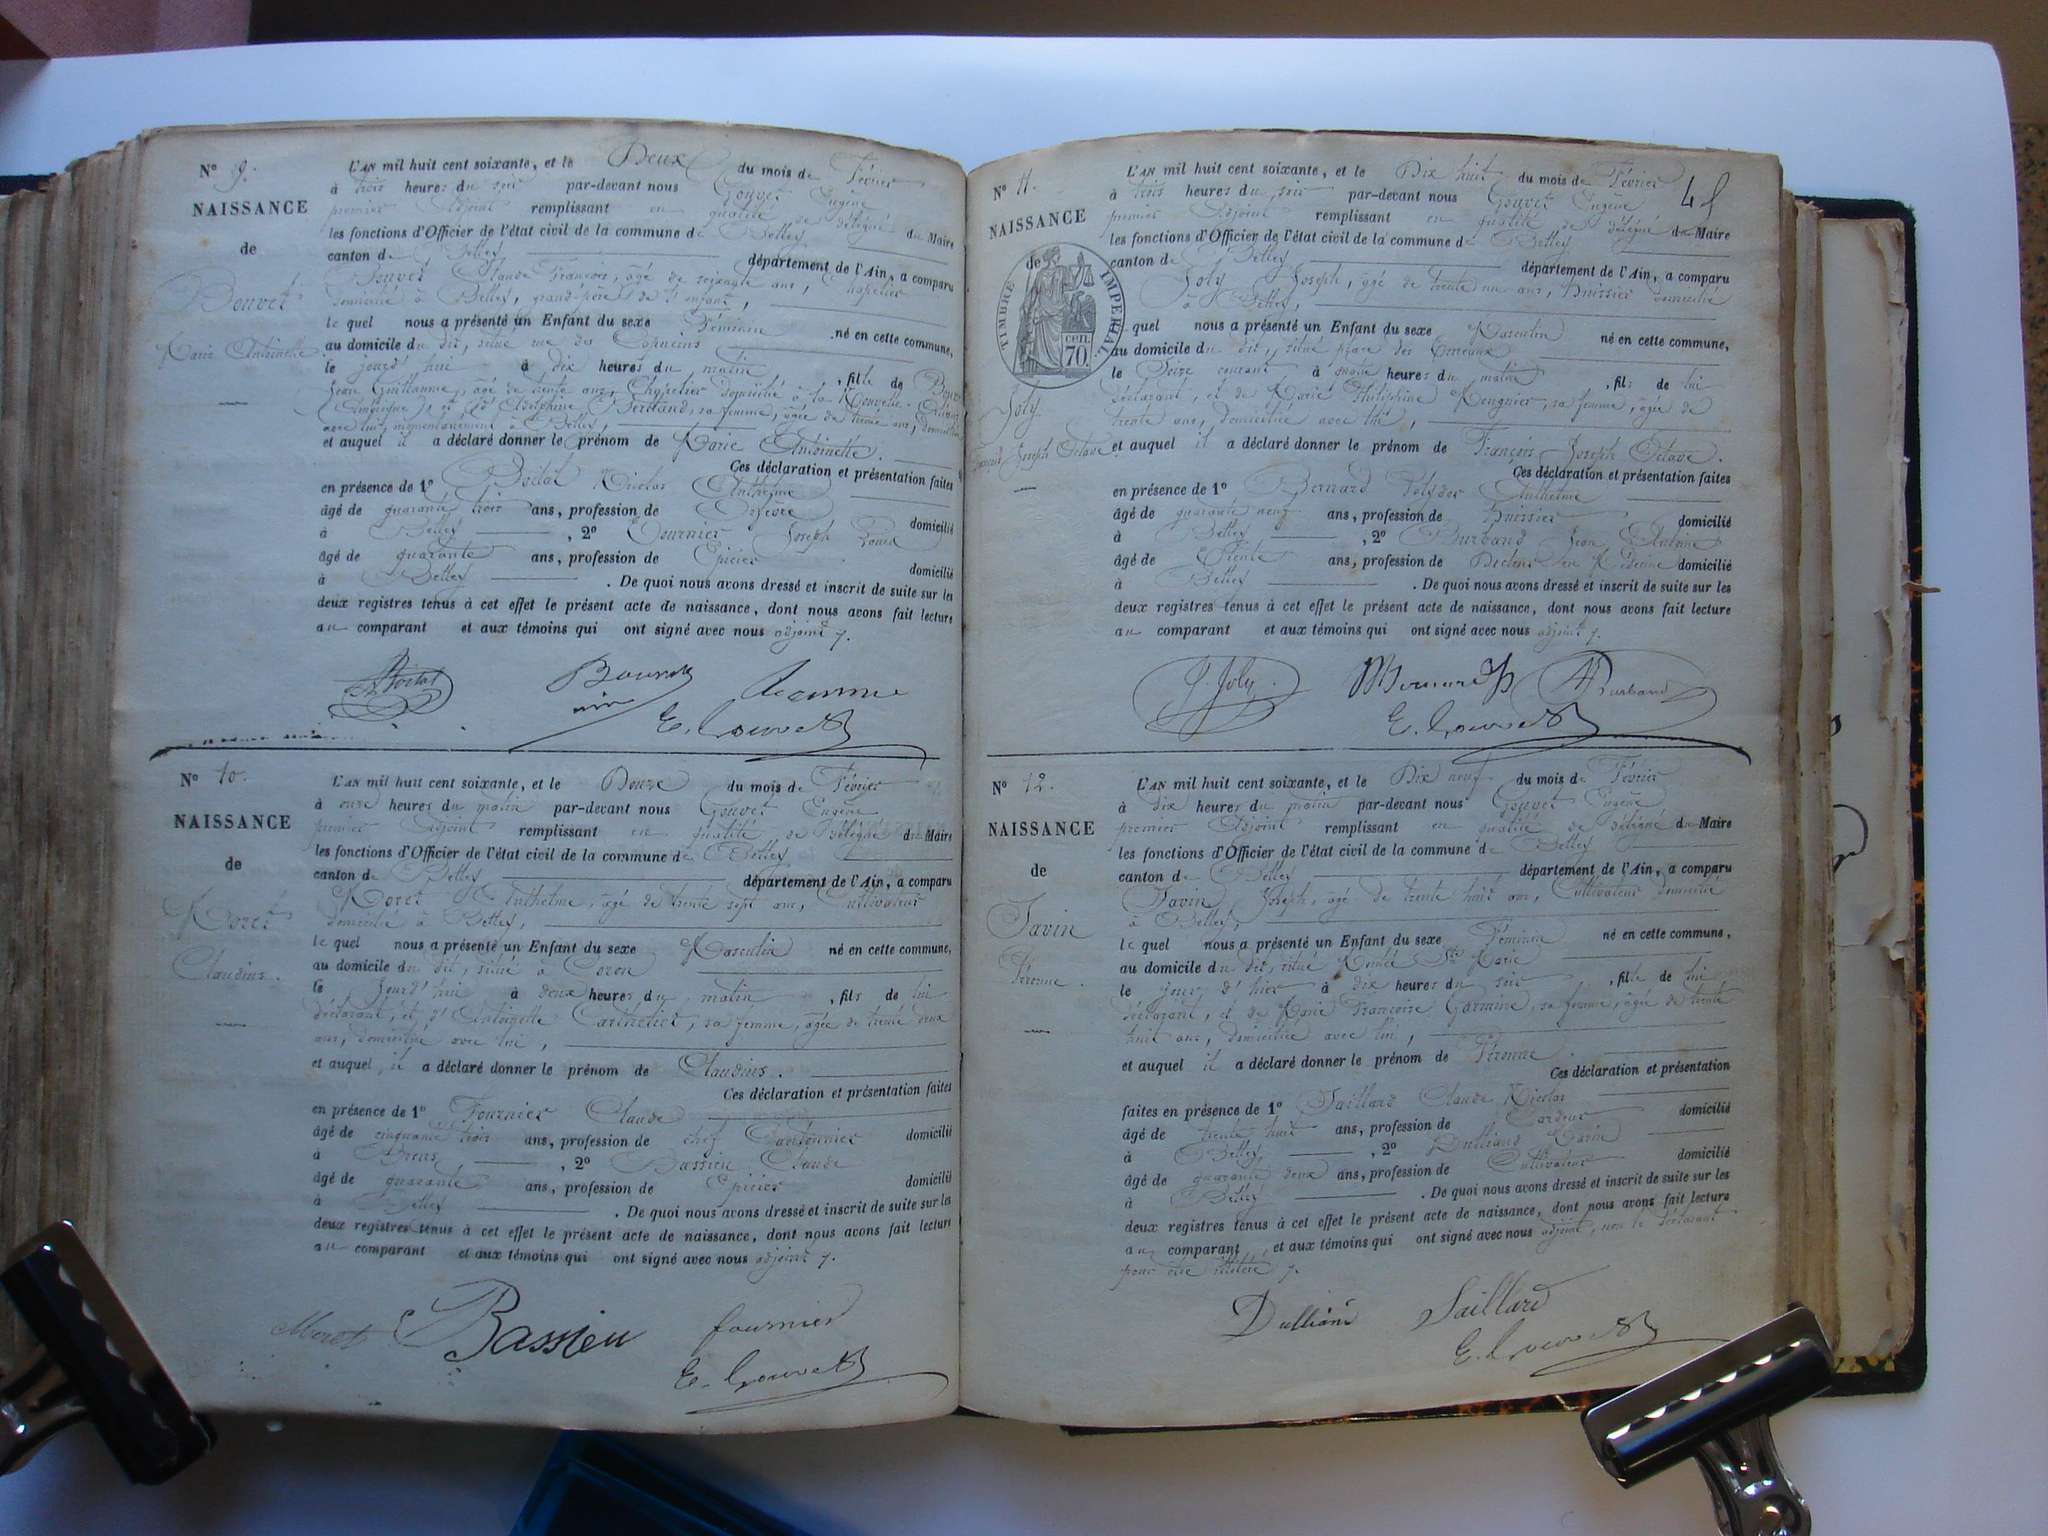 N° 9.
NAISSANCE
de
Bouvet
Marie Antoinette
L'AN mil huit cent soixante, et le Deux du mois de Février
à trois heures du soir par-devant nous Gouvet Eugène
premier Adjoint remplissant en qualité de délégué du Maire
les fonctions d'Officier de l'état civil de la commune de Belley
canton de Belley département de l'Ain, a comparu
Bouvet Claude François, âgé de soixante ans, Chapelier
domicilié à Belley, grand-père de l'enfant,
le quel nous a présenté un Enfant du sexe Féminin né en cette commune,
au domicile du dit, situé rue des Capucins
le jourd'hui à dix heures du matin, fille de Bouvet
Jean Guillaume, âgé de trente ans, Chapelier domicilié à la
et d' Adelphine Bertrand, sa femme, âgée de trente ans, domiciliée
avec lui, momentanément à Belley,
et auquel il a déclaré donner le prénom de Marie Antoinette.
Ces déclaration et présentation faites
en présence de 1° Boital Nicolas Anthelme
âgé de quarante trois ans, profession de Orfèvre domicilié
à Belley, 2° Joseph
âgé de quarante ans, profession de Epicier domicilié
à Belley. De quoi nous avons dressé et inscrit de suite sur les
deux registres tenus à cet effet le présent acte de naissance, dont nous avons fait lecture
au comparant et aux témoins qui ont signé avec nous adjoint
Boital Bouvet
E. Gouvet
N° 10.
NAISSANCE
de
Moret
Claudius.
L'AN mil huit cent soixante, et le Douze du mois de Février
à onze heures du matin par-devant nous Gouvet Eugène
premier Adjoint remplissant en qualité de Délégué du Maire
les fonctions d'Officier de l'état civil de la commune de Belley
canton de Belley département de l'Ain, a comparu
Moret Anthelme, âgé de trente sept ans, Cultivateur
domicilié à Belley,
le quel nous a présenté un Enfant du sexe Masculin né en cette commune,
au domicile du dit, situé à Coron
le jourd'hui à deux heures du matin, fils de lui
déclarant, et d' Antoinette sa femme, âgée de trente deux
ans, domiciliée avec lui,
et auquel il a déclaré donner le prénom de Claudius.
Ces déclaration et présentation faites
en présence de 1° Fournier Claude
âgé de cinquante trois ans, profession de chef Cantonnier domicilié
à Brens, 2° Bassieu Claude
âgé de quarante ans, profession de Epicier domicilié
à Belley. De quoi nous avons dressé et inscrit de suite sur les
deux registres tenus à cet effet le présent acte de naissance, dont nous avons fait lecture
au comparant et aux témoins qui ont signé avec nous adjoint
Moret Bassieu fournier
E. Gouvet
48
N° 11.
NAISSANCE
de
TIMBRE IMPERIAL
70 CEN.
Joly
François Joseph Octave
L'AN mil huit cent soixante, et le Dix huit du mois de Février
à trois heures du soir par-devant nous Gouvet Eugène
premier Adjoint remplissant en qualité de délégué du Maire
les fonctions d'Officier de l'état civil de la commune de Belley
canton de Belley département de l'Ain, a comparu
Joly Joseph, âgé de trente un ans, Huissier domicilié
à Belley,
le quel nous a présenté un Enfant du sexe Masculin né en cette commune,
au domicile du dit, situé place des Terreaux
le Seize courant à heures du matin, fils de lui
déclarant, et de Marie Philiphine sa femme, âgée de
trente ans, domiciliée avec lui,
et auquel il a déclaré donner le prénom de François Joseph Octave.
Ces déclaration et présentation faites
en présence de 1° Bernard Anthelme
âgé de quarante neuf ans, profession de Huissier domicilié
à Belley, 2° Burband Jean Antoine
âgé de Trente ans, profession de Docteur en Médecine domicilié
à Belley. De quoi nous avons dressé et inscrit de suite sur les
deux registres tenus à cet effet le présent acte de naissance, dont nous avons fait lecture
au comparant et aux témoins qui ont signé avec nous adjoint
J. Joly Bernard Burband
E. Gouvet
N° 12.
NAISSANCE
de
Favin
Péronne.
L'AN mil huit cent soixante, et le Dix neuf du mois de Février
à dix heures du matin par-devant nous Gouvet Eugène
premier Adjoint remplissant en qualité de délégué du Maire
les fonctions d'Officier de l'état civil de la commune de Belley
canton de Belley département de l'Ain, a comparu
Favin Joseph, âgé de trente huit ans, Cultivateur domicilié
à Belley,
le quel nous a présenté un Enfant du sexe Féminin né en cette commune,
au domicile du dit, situé Ste Marie
le jour d'hier à dix heures du soir, fille de lui
déclarant, et de Marie Françoise sa femme, âgée de trente
huit ans, domiciliée avec lui,
et auquel il a déclaré donner le prénom de Péronne.
Ces déclaration et présentation
faites en présence de 1° Saillard Claude Nicolas
âgé de trente huit ans, profession de Cordeur domicilié
à Belley, 2° Dulliand
âgé de quarante deux ans, profession de Cultivateur domicilié
à Belley. De quoi nous avons dressé et inscrit de suite sur les
deux registres tenus à cet effet le présent acte de naissance, dont nous avons fait lecture
au comparant, et aux témoins qui ont signé avec nous adjoint, non le déclarant
pour être illétéré
Dulliand Saillard
E. Gouvet